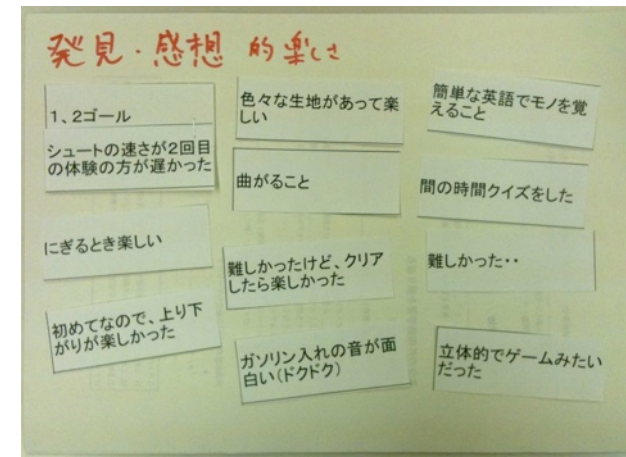 発見・感想 的楽しさ
1、2ゴール
シュートの速さが2回目
の体験の方が遅かった
にぎるとき楽しい
初めてなので、上り下
がりが楽しかった
色々な生地があって楽
しい
曲がること
難しかったけど、クリア
したら楽しかった
ガソリン入れの音が面
白い(ドクドク)
簡単な英語でモノを覚
えること
間の時間クイズをした
難しかった・・
立体的でゲームみたい
だった